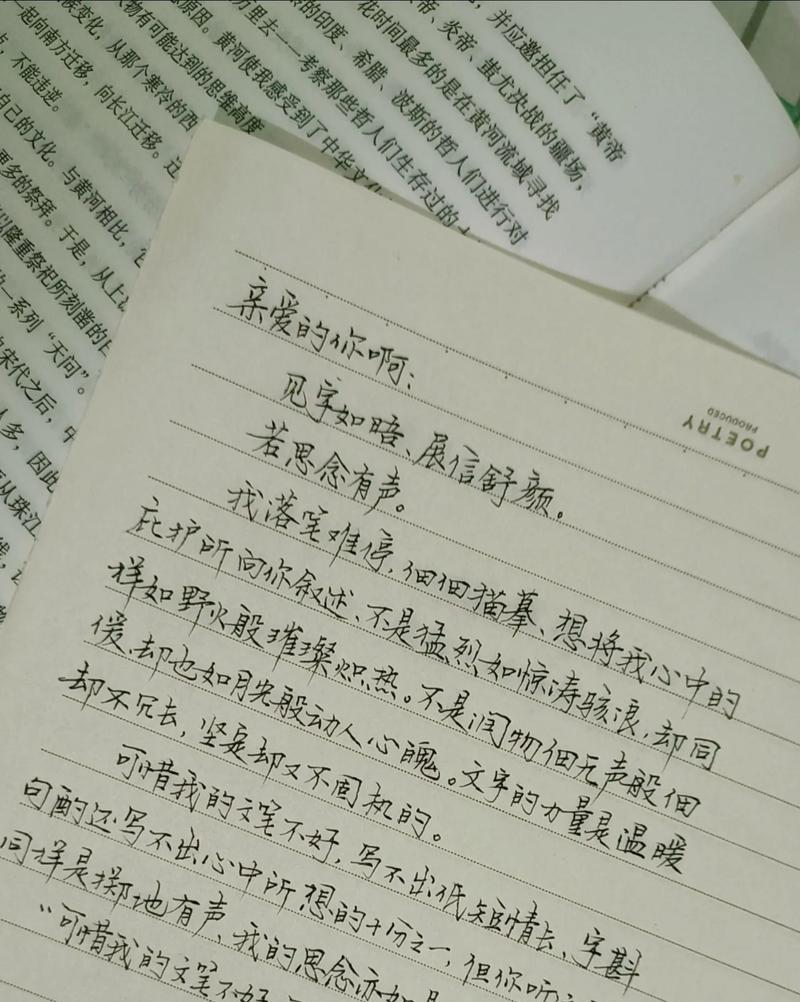 ，并应邀担任了“黄帝
帝、炎帝、蚩尤决战的疆场，
花时间最多的是在黄河流域寻找
的印度、希腊、波斯的哲人们进行对
历里去——考察那些哲人们生存过的
思原因。黄河使我感受到了中华文化
人物有可能达到的思维高度
族变化，从那个寒冷的西
一起向南方迁移，向长江迁移。
点，不能违逆。
自己的文化。与黄河相比，
更多的祭拜。于是，从上
以隆重祭祀所刻凿的
的一系列“天问”。
宋代之后，
人多，因此
从珠江
POETRY
PRODUCED
亲爱的你啊：
见字如晤、展信舒颜。
若思念有声。
我落笔难停，细细描摹、想将我心中的
庇护所向你叙述、不是猛烈如惊涛骇浪，却同
样如野火般璀璨炽热。不是润物细无声般细
缓、却也如月光般动人心魄。文字的力量是温暖
却不冗长，坚定却又不固执的。
可惜我的文笔不好，写不出低短情长、字斟
句酌还写不出心中所想的十万之一，但你听
同样是掷地有声、我的思念亦如是
“可惜我的文笔不好